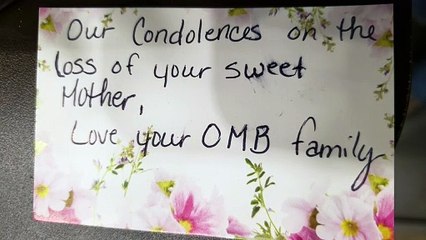 Our Condolences on the
loss of your sweet
Mother,
Love your OMB family